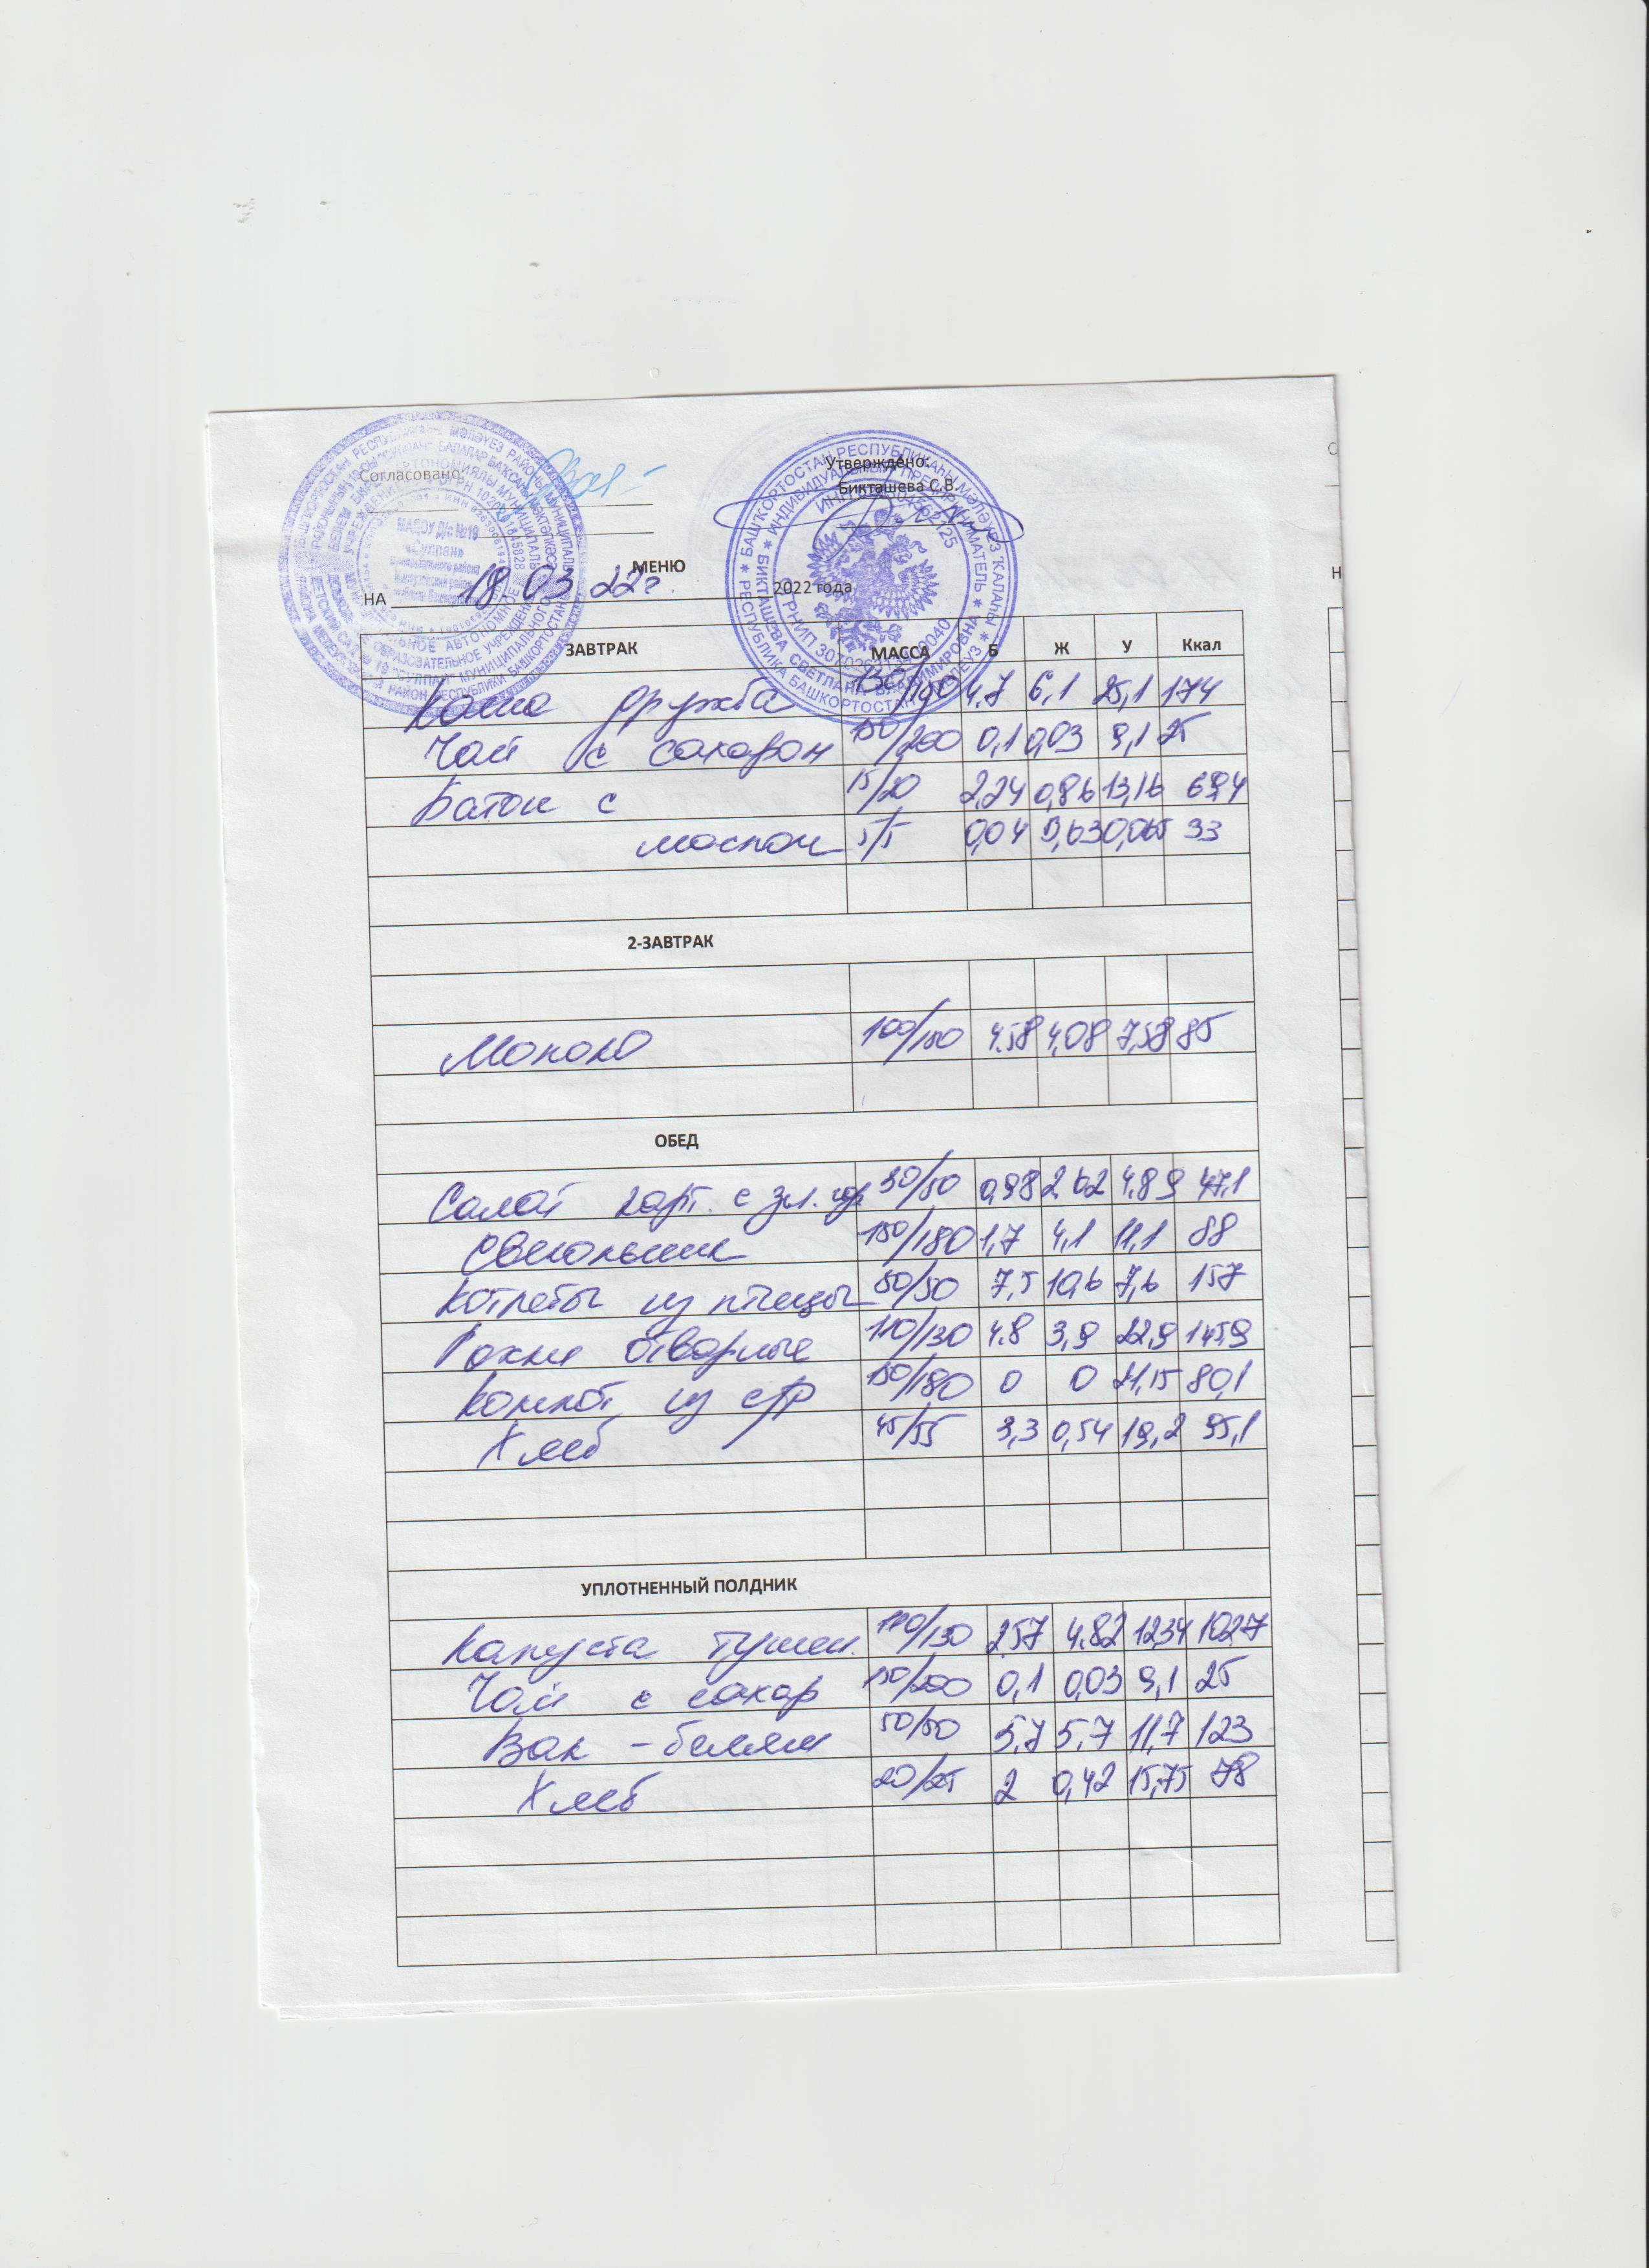 Согласовано:
Утверждено:
Бикташева С.В.
МЕНЮ
НА 18.03.22г. 2022 года
ЗАВТРАК МАССА Б Ж У Ккал
Каша дружба 150/190 4.7 6,1 25,1 174
Чай с сахаром 150/200 0,1 0,03 9,1 25
Батон с 15/20 2,24 0,86 13,16
маслом 5/5 0,04 33
2-ЗАВТРАК
Молоко 100/150 4.58 4,08 7,58 85
ОБЕД
Салат карт. с 30/50 0,98 2,62 4.89 47,1
Свекольник 150/180 1,7 4,1 11,1 88
Котлеты из птицы 50/50 7,5 10,6 7,6 157
Рожки отварные 110/130 4.8 3,9 22,9 145,9
Компот из с/ф 150/180 0 0 21,15 80,1
Хлеб 45/55 3,3 0,54 19,2 95,1
УПЛОТНЕННЫЙ ПОЛДНИК
Капуста тушен. 110/130 2,57 4.82 12,34 102,7
Чай с сахар 150/200 0,1 0,03 9,1 25
Вак-беляш 50/50 5,7 5,7 11,7 123
Хлеб 20/25 2 0,42 15,75 78